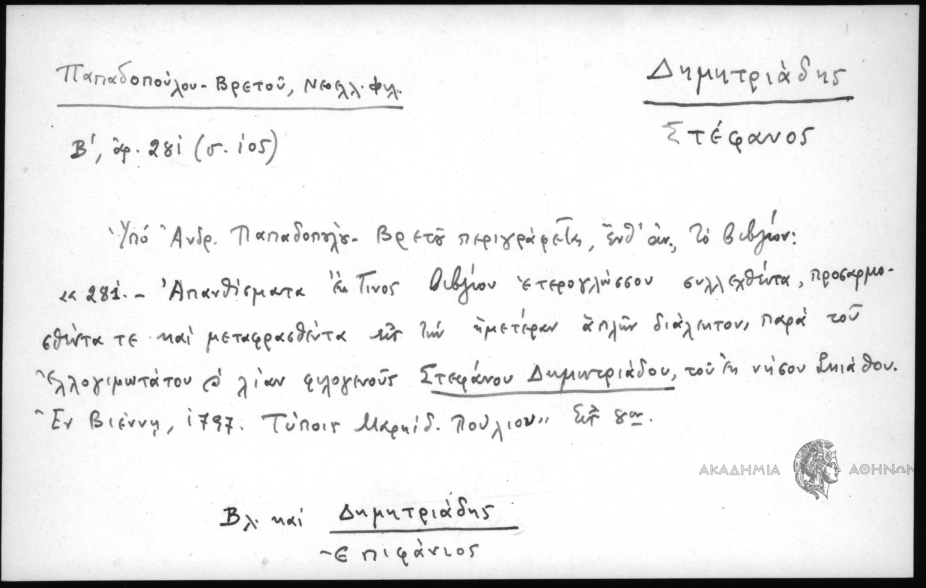 Παπαδοπούλου-Βρετοῦ, Νεοελλ. Φιλ.
Β', ἀρ. 281 (σ. 105)
Δημητριάδης
Στέφανος
Ὑπό Ἀνδρ. Παπαδοπούλου-Βρετοῦ περιγράφεται, ἔνθ' ἀν., τό βιβλίον:
"281.- Ἀπανθίσματα ἔκ τινος βιβλίου ἑτερογλώσσου συλλεχθέντα, προσαρμο-
σθέντα τε καί μεταφρασθέντα εἰς τήν ἡμετέραν ἁπλῆν διάλεκτον, παρά τοῦ
ἐλλογιμωτάτου & λίαν φιλογενοῦς Στεφάνου Δημητριάδου, τοῦ ἐκ νήσου Σκιάθου.
Ἐν Βιέννῃ, 1797. Τύποις Μαρκίδ. Πούλιου" εἰς 8ον.
ΑΚΑΔΗΜΙΑ ΑΘΗΝΩΝ
Βλ. καί Δημητριάδης
Ἐπιφάνιος